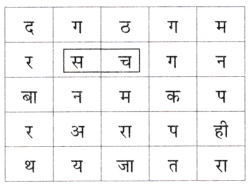 द ग ठ ग म
र स च ग न
बा न म क प
र अ रा प ही
थ य जा त रा